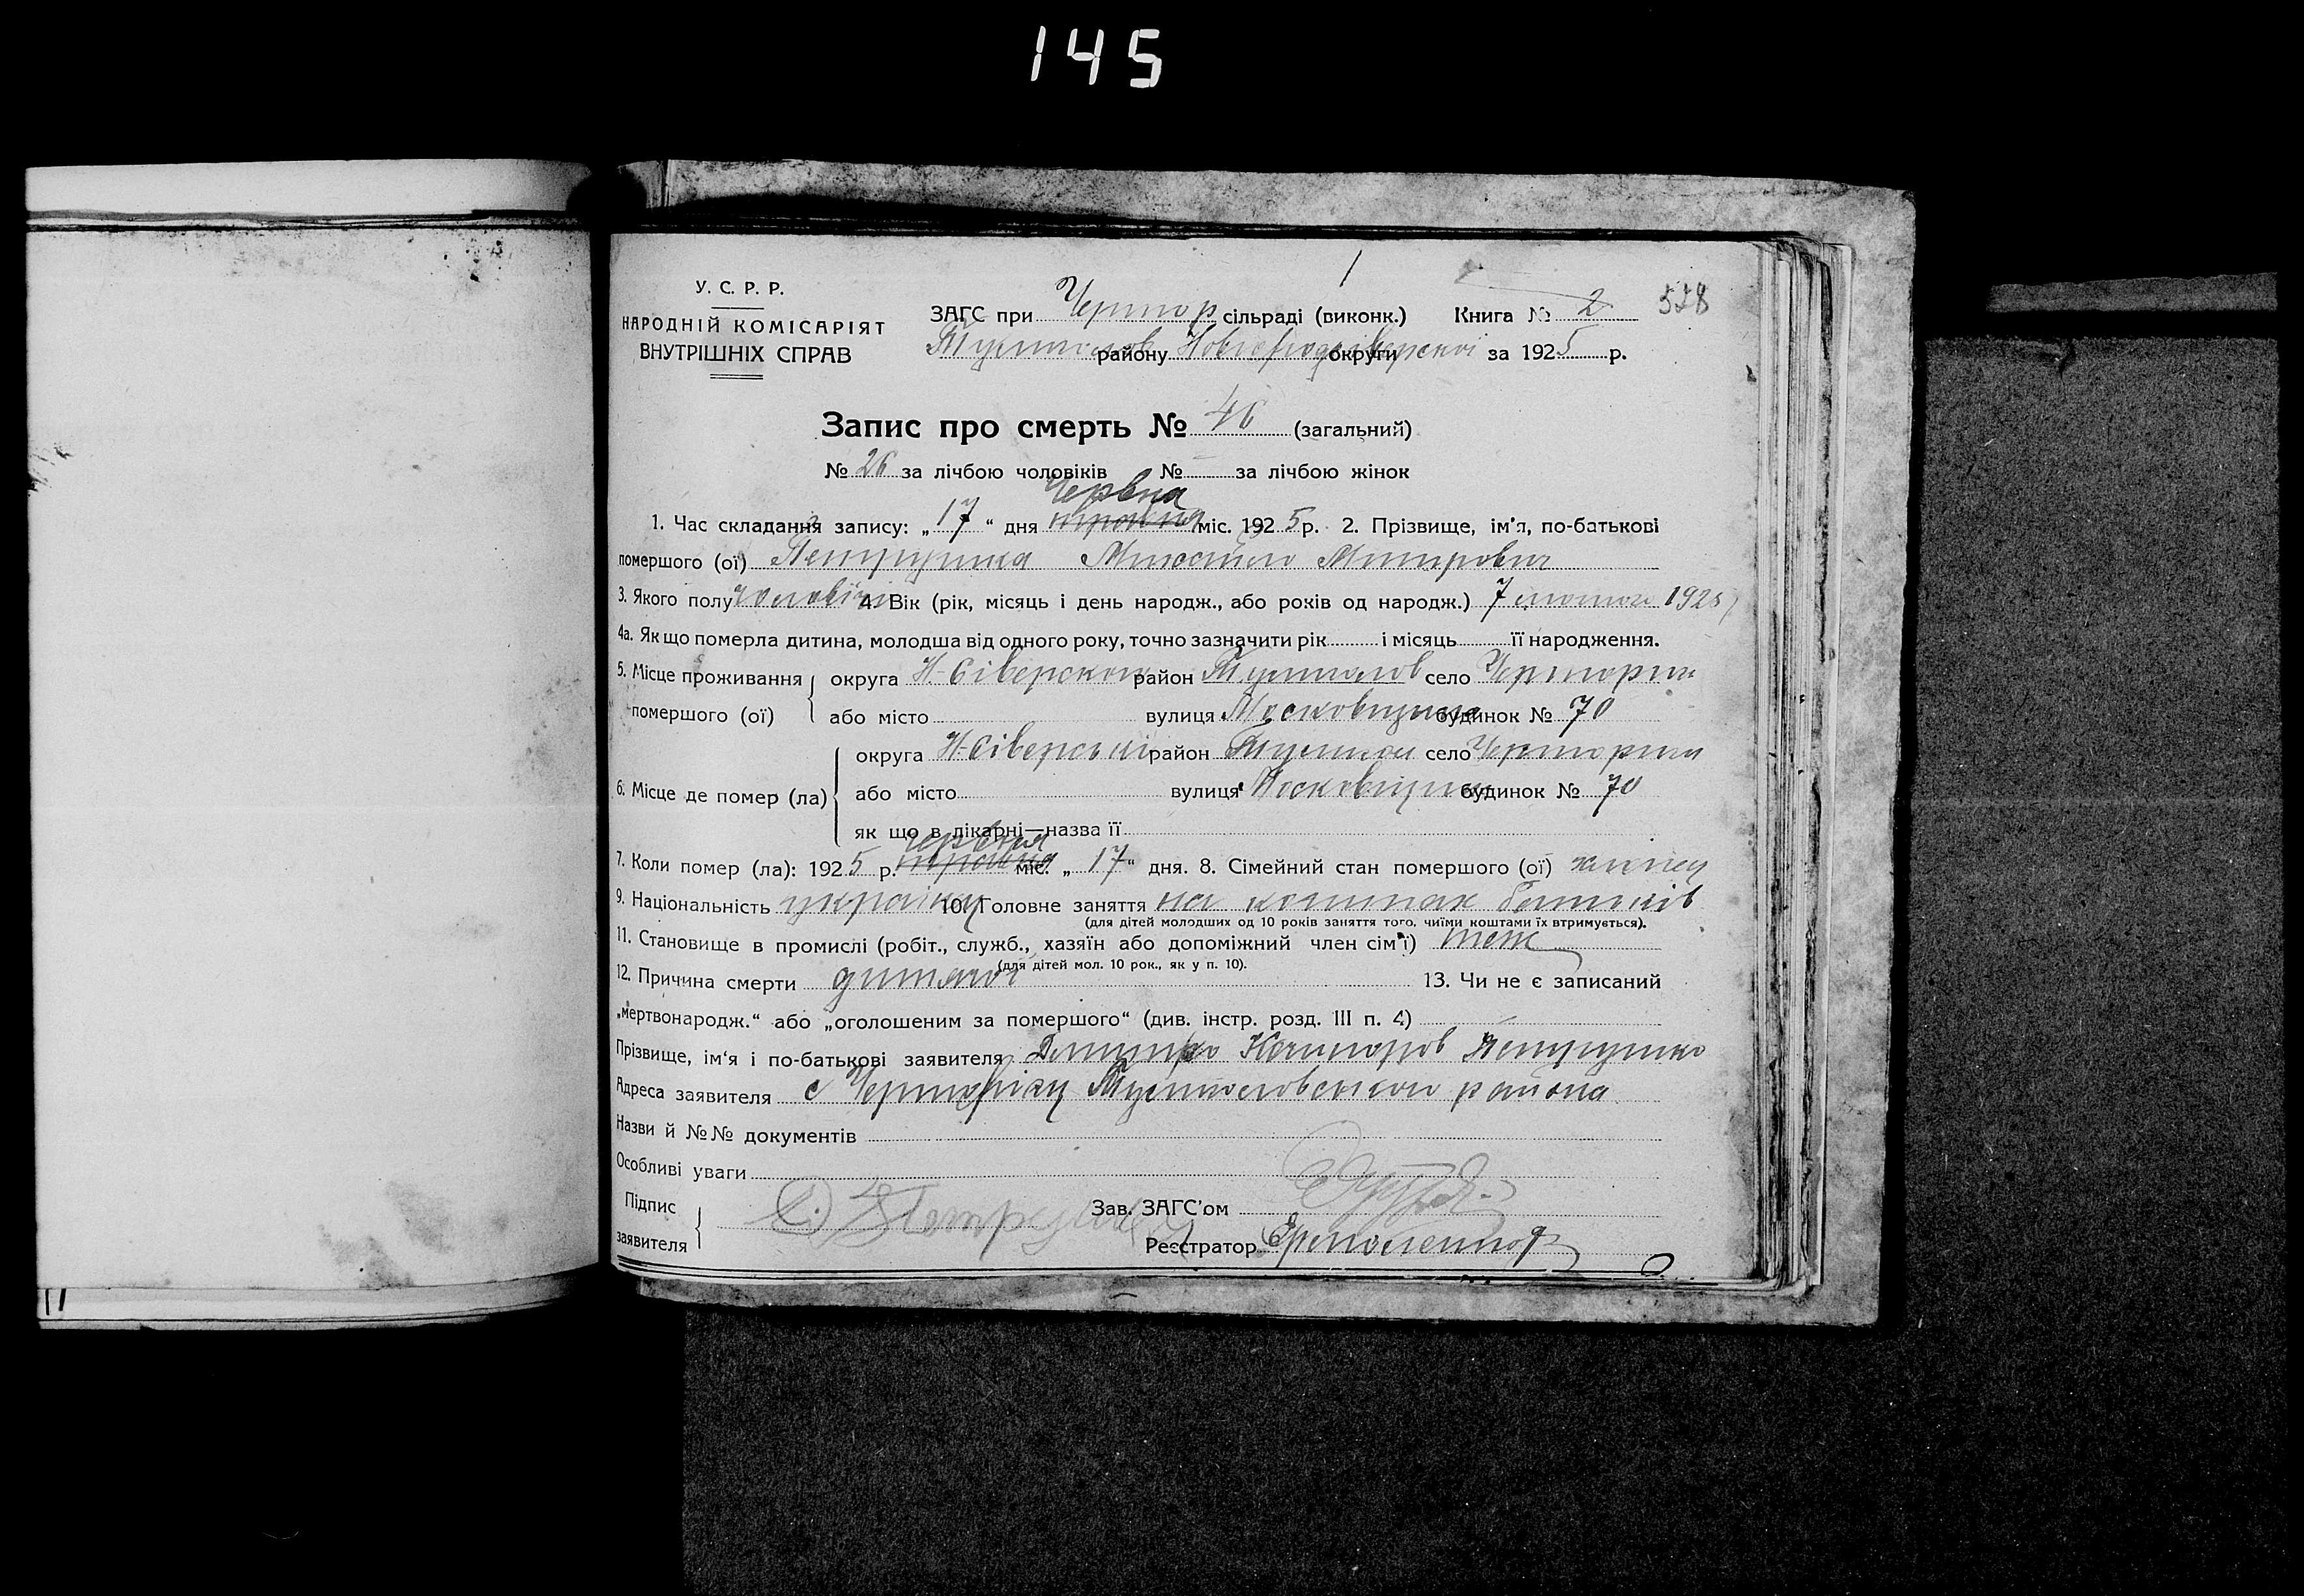 145
У. С. Р. Р.
НАРОДНІЙ КОМІСАРІЯТ
ВНУТРІШНІХ СПРАВ
ЗАГС при Чертор сільраді (виконк.) Книга № 2 578
району округи за 1925 р.
Запис про смерть № 46 (загальний)
№ 26 за лічбою чоловіків № — за лічбою жінок
Червня
1. Час складання запису: „17“ дня травня міс. 1925 р. 2. Прізвище, ім'я, по-батькові
помершого (ої) Петрушка Михайло Митрович
3. Якого полу чоловічи 4. Вік (рік, місяць і день народж., або років од народж.) 7 лютого 1925
4а. Як що померла дитина, молодша від одного року, точно зазначити рік і місяць її народження.
5. Місце проживання округа Н-Сіверского район село Черториги
помершого (ої) або місто вулиця Московщина будинок № 70
округа Н-Сіверські район село Черториги
6. Місце де помер (ла) або місто вулиця Московщина будинок № 70
як що в лікарні—назва її
червня
7. Коли помер (ла): 1925 р. травня міс. „17“ дня. 8. Сімейний стан помершого (ої)
9. Національність українц 10. Головне заняття на коштах батьків
(для дітей молодших од 10 років заняття того, чиїми коштами їх втримується).
11. Становище в промислі (робіт., служб., хазяїн або допоміжний член сім'ї) теж
(для дітей мол. 10 рок., як у п. 10).
12. Причина смерти 13. Чи не є записаний
„мертвонародж.“ або „оголошеним за помершого“ (див. інстр. розд. III п. 4)
Прізвище, ім'я і по-батькові заявителя Дмитро Петрушко
Адреса заявителя с района
Назви й №№ документів
Особливі уваги
Підпис
заявителя Д Петрушка
Зав. ЗАГС'ом
Реєстратор